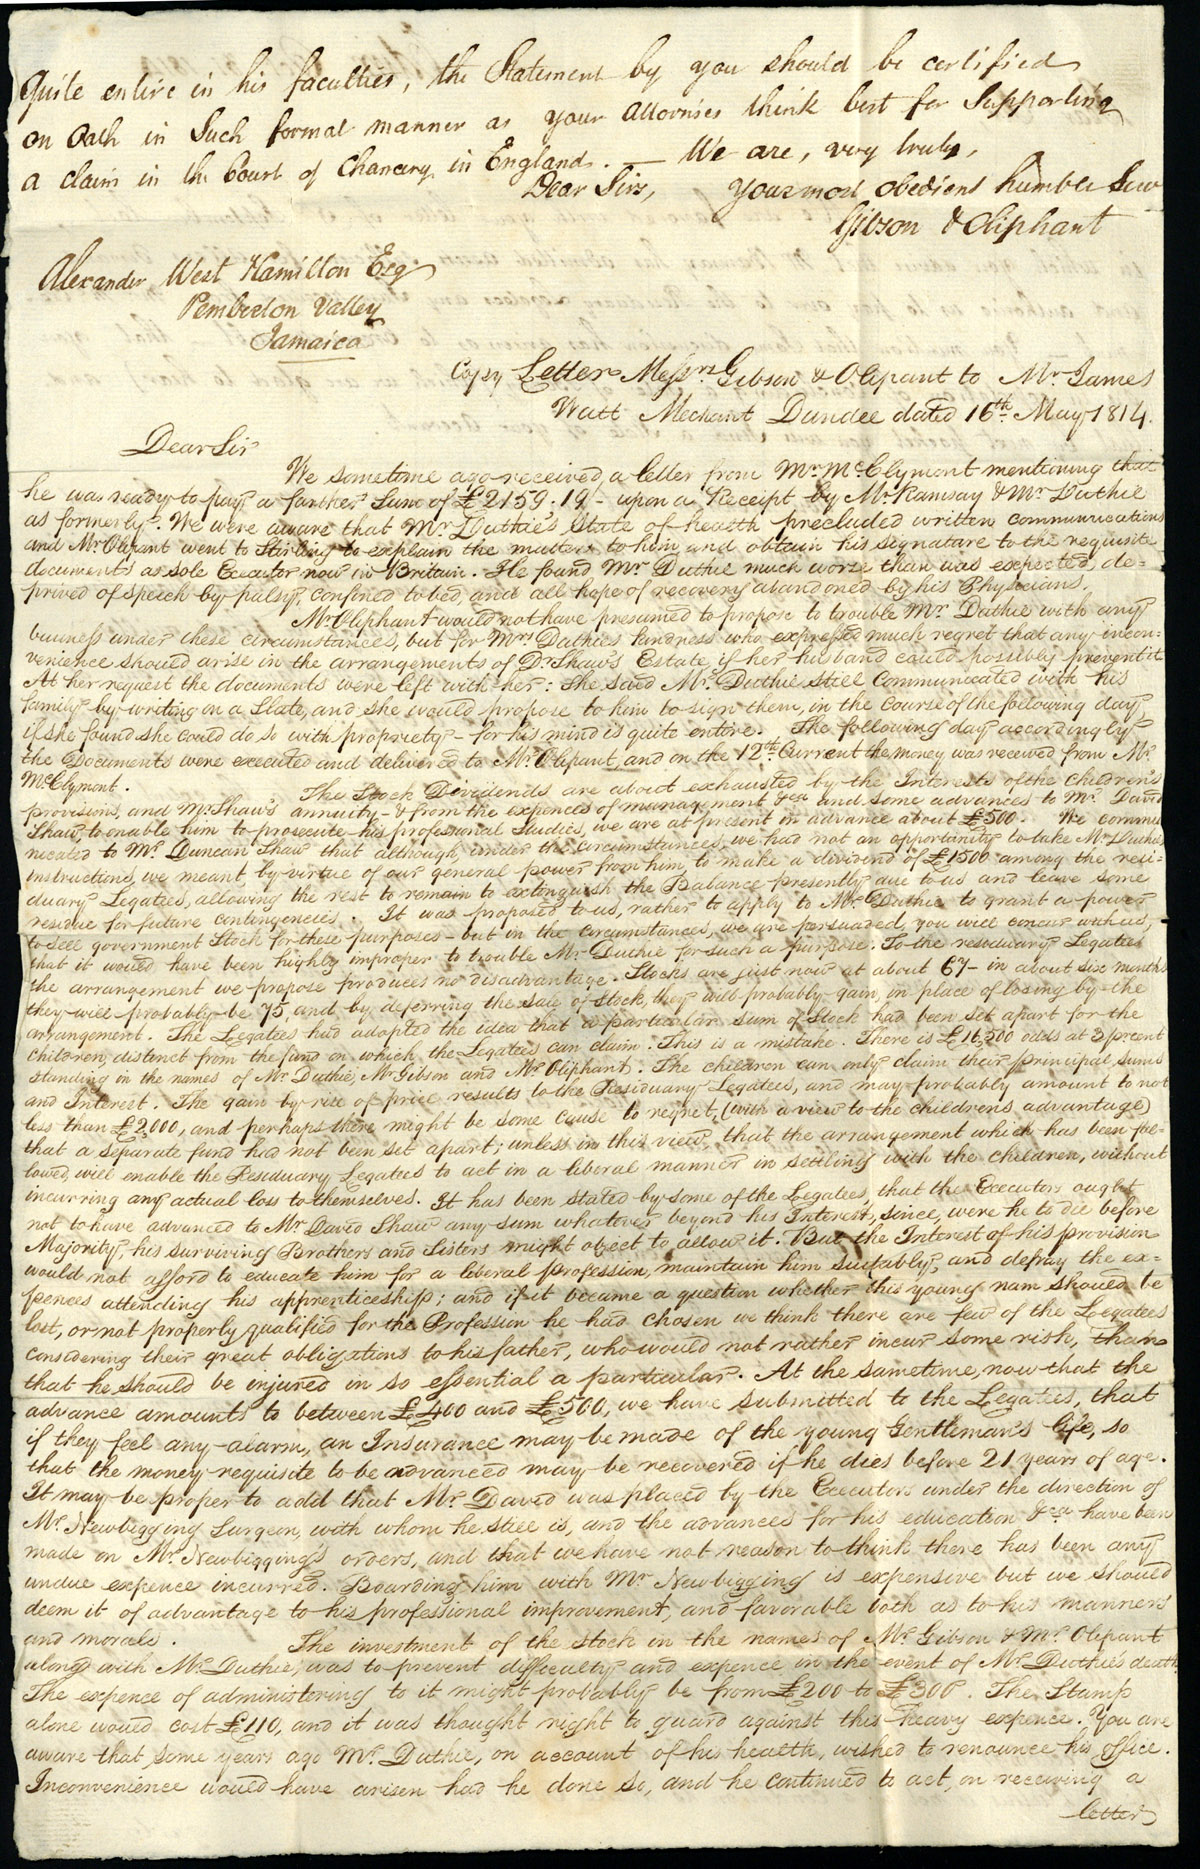 quite entire in his faculties, the Statement by you should be certified
on Oath in Such formal manner as your Attornies think best for Supporting
a claim in the Court of Chancery in England. — We are, very truly,
Dear Sirs, your most obedient humble Serv
Gibson & Oliphant
Alexander West Hamilton Esq
Pemberton Valley
Jamaica
Copy Letter Messrs Gibson & Olipant to Mr. James
Watt Mechant Dundee dated 16th May 1814.
Dear Sir
We sometime ago received a letter from Mr. McClymont mentioning that
he was ready to pay a farther Sum of £2159.19- upon a Receipt by Mr. Ramsay & Mr Duthie
as formerly. We were aware that Mr. Duthie's State of health precluded written communications
and Mr. Olipant went to Stirling to explain the matters to him and obtain his signature to the requisite
documents as sole Executor now in Britain. He found Mr. Duthie much worse than was expected, de-
prived of speech by palsy, confined to bed, and all hope of recovery abandoned by his Physicians.
Mr. Oliphant would not have presumed to propose to trouble Mr. Duthie with any
business under these circumstances, but for Mrs Duthies kindness who expressed much regret that any incon-
venience should arise in the arrangements of Dr. Shaw's Estate, if her husband could possibly prevent it
At her request the documents were left with her: She said Mr. Duthie still communicated with his
family by writing on a Slate, and she would propose to him to sign them, in the course of the following day,
if she found she could do so with propriety - for his mind is quite entire. The following day accordingly
the Documents were executed and delivered to Mr. Olipant, and on the 12th Current the money was received from Mr.
McClymont. The Stock Dividends are about exhausted by the Interests of the children's
provisions, and Mrs Shaw's annuity - & from the expences of management &ca and some advances to Mr. David
Shaw, to enable him to prosecute his professional Studies, we are at present in advance about £500. We commu
nicated to Mr. Duncan Shaw that although, under the circumstances, we had not an opportunity to take Mr Duthies
instructions, we meant by virtue of our general power from him to make a dividend of £1500 among the resi-
duary Legatees, allowing the rest to remain to extinguish the Balance presently due to us and leave some
residue for future contingencies. It was proposed to us, rather to apply to Mr Duthie to grant a power
to sell government Stock for these purposes - but in the circumstances, we are persuaded, you will concur with us,
that it would have been highly improper to trouble Mr. Duthie for such a purpose. To the residuary Legatees
the arrangement we propose produces no disadvantage. Stocks are just now at about 67 - in about six months
they will probably be 75, and by deferring the sale of stock, they will probably gain, in place of losing by the
arrangement. The Legatees had adopted the idea that a particular sum of Stock had been set apart for the
children, distinct from the fund on which the Legatees can claim. This is a mistake. There is £16,500 odds at 3 prcent
standing in the names of Mr. Duthie, Mr Gibson and Mr Oliphant. The children can only claim their principal sums
and Interest. The gain by rise of price results to the Residuary Legatees, and may probably amount to not
less than £2,000, and perhaps there might be some cause to regret, (with a view to the childrens advantage)
that a separate fund had not been set apart; unless in this view that the arrangement which has been fol-
lowed, will enable the Residuary Legatees to act in a liberal manner in settling with the children, without
incurring any actual loss to themselves. It has been stated by some of the Legatees, that the Executors ought
not to have advanced to Mr. David Shaw any sum whatever beyond his Interest, since, were he to die before
Majority, his surviving Brothers and Sisters might object to allow it. But the Interest of his provision
would not afford to educate him for a liberal profession, maintain him suitably, and defray the ex-
pences attending his apprenticeship; and if it became a question whether this young man should be
lost, or not properly qualified for the Profession he had chosen we think there are few of the Legatees
considering their great obligations to his father, who would not rather incur some risk, than
that he should be injured in so essential a particular. At the sametime, now that the
advance amounts to between £400 and £500, we have submitted to the Legatees, that
if they feel any alarm, an Insurance may be made of the young Gentleman's life, so
that the money requisite to be advanced may be recovered if he dies before 21 years of age.
It may be proper to add that Mr. David was placed by the Executors under the direction of
Mr. Newbigging Surgeon, with whom he still is, and the advances for his education &ca have been
made on Mr. Newbigging's orders, and that we have not reason to think there has been any
undue expence incurred. Boarding him with Mr Newbigging is expensive but we should
deem it of advantage to his professional improvement, and favorable both as to his manners
and morals. The investment of the stock in the names of Mr. Gibson & Mr. Olipant
along with Mr. Duthie, was to prevent difficulty and expence in the event of Mr. Duthie's death
The expence of administering to it might probably be from £200 to £300. The Stamp
alone would cost £110, and it was thought right to guard against this heavy expence. You are
aware that some years ago Mr. Duthie, on account of his health, wished to renounce his office.
Inconvenience would have arisen had he done so, and he continued to act, on receiving a
letter